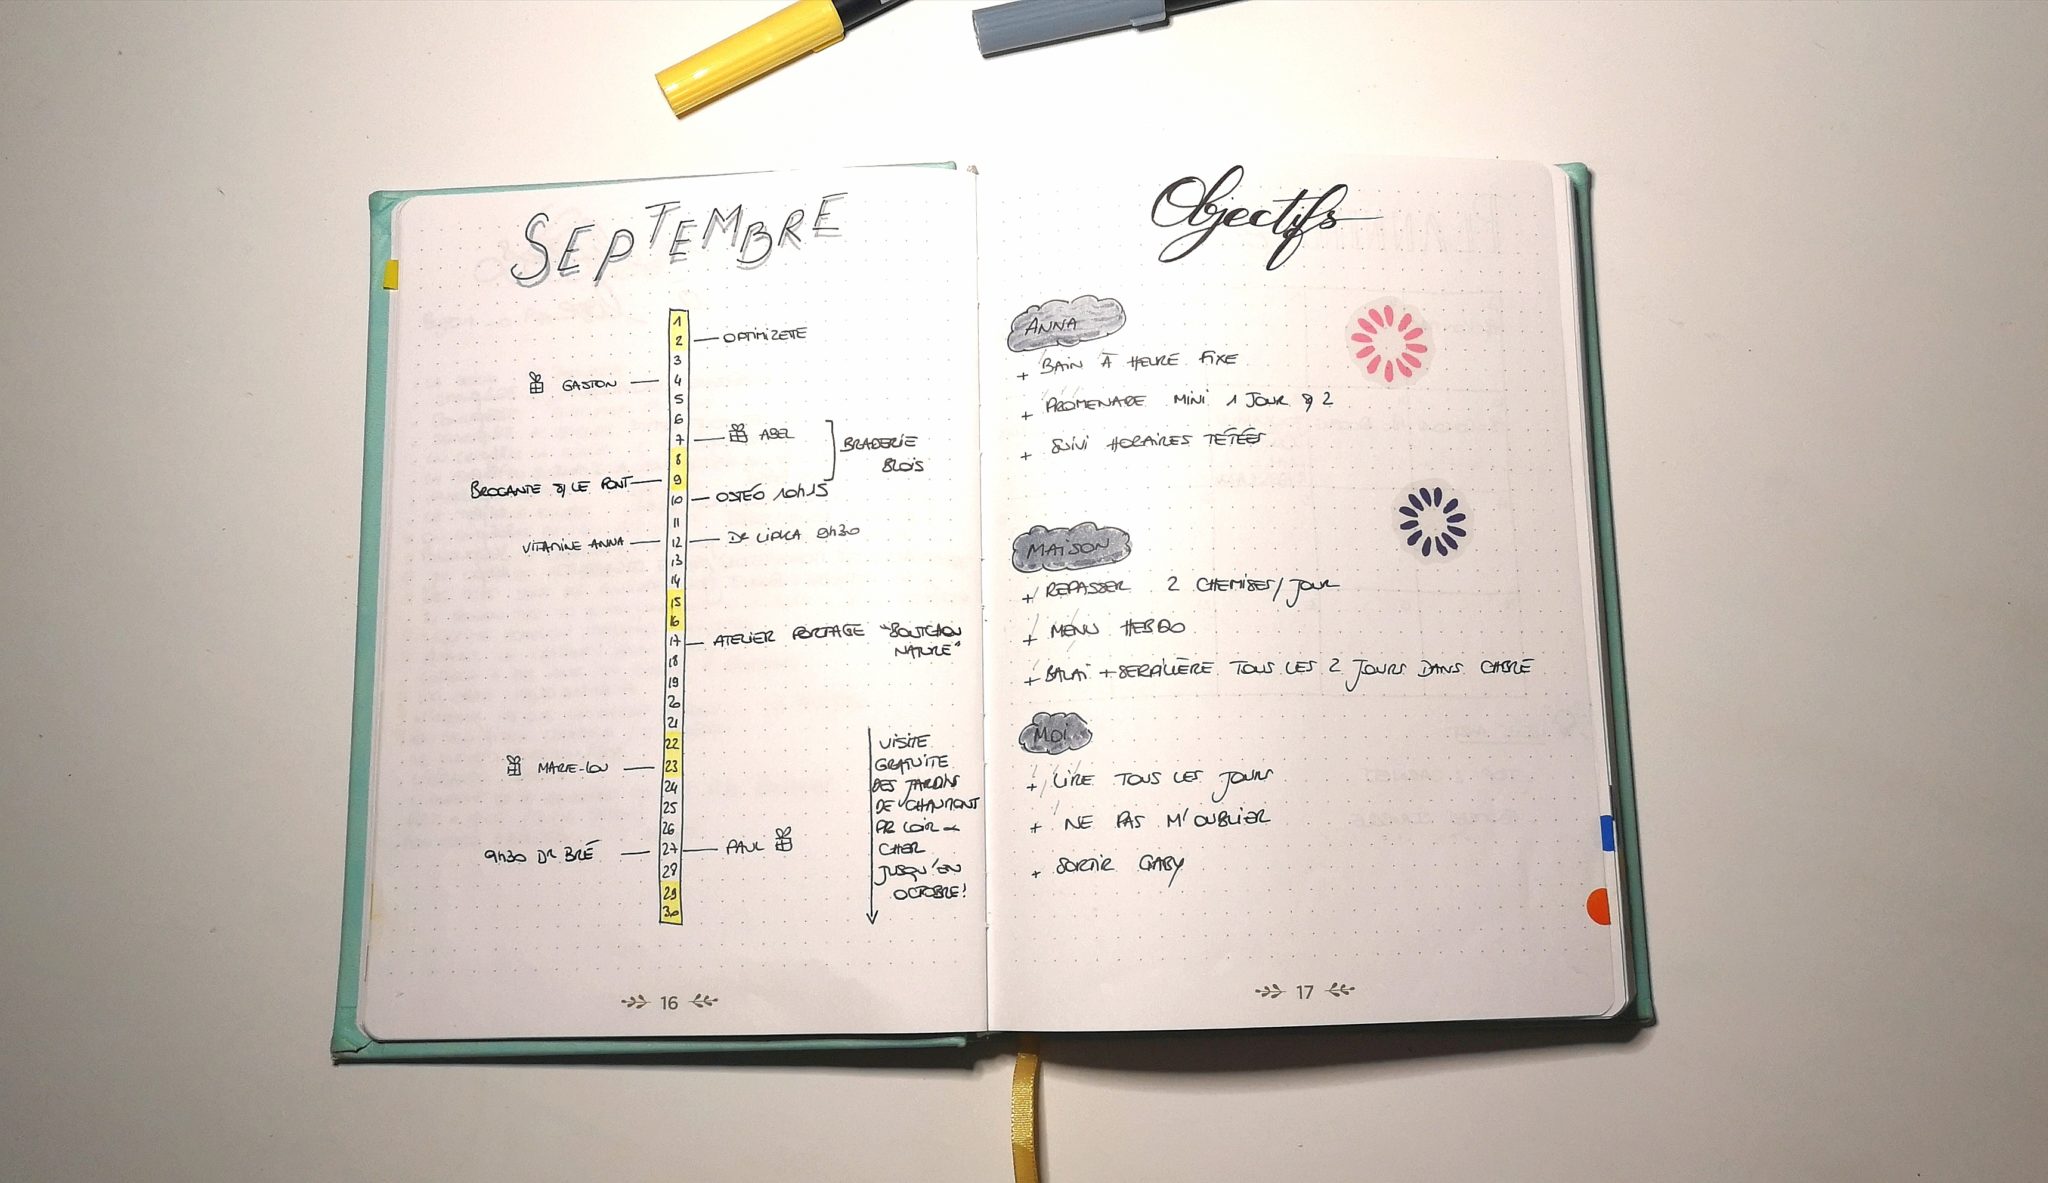 SEPTEMBRE
1
2 — OPTIMIZETE
3
GASTON — 4
5
6
7 — ABEL
BRADERIE
BLOIS
8
BROCANTE s/ LE PONT — 9
10 — OSTÉO 10h15
11
VITAMINE ANNA — 12 — Dr LIPKA 9h30
13
14
15
16
17 — ATELIER PORTAGE "BOUTCHOU
NATURE"
18
19
20
21
22
MARIE-LOU — 23
24
25
26
9h30 Dr BRÉ — 27 — PAUL
28
29
30
VISITE
GRATUITE
DES JARDINS
DE CHAUMONT
PR LOIR &
CHER
JUSQU'EN
OCTOBRE!
16
Objectifs
ANNA
+ BAIN À HEURE FIXE
+ PROMENADE MINI 1 JOUR s/ 2
+ SUIVI HORAIRES TÉTÉES
MAISON
+ REPASSER 2 CHEMISES/JOUR
+ MENU HEBDO
+ BALAI + SERPILLIÈRE TOUS LES 2 JOURS DANS
MOI
+ LIRE TOUS LES JOURS
+ NE PAS M'OUBLIER
+ SORTIR GABY
17